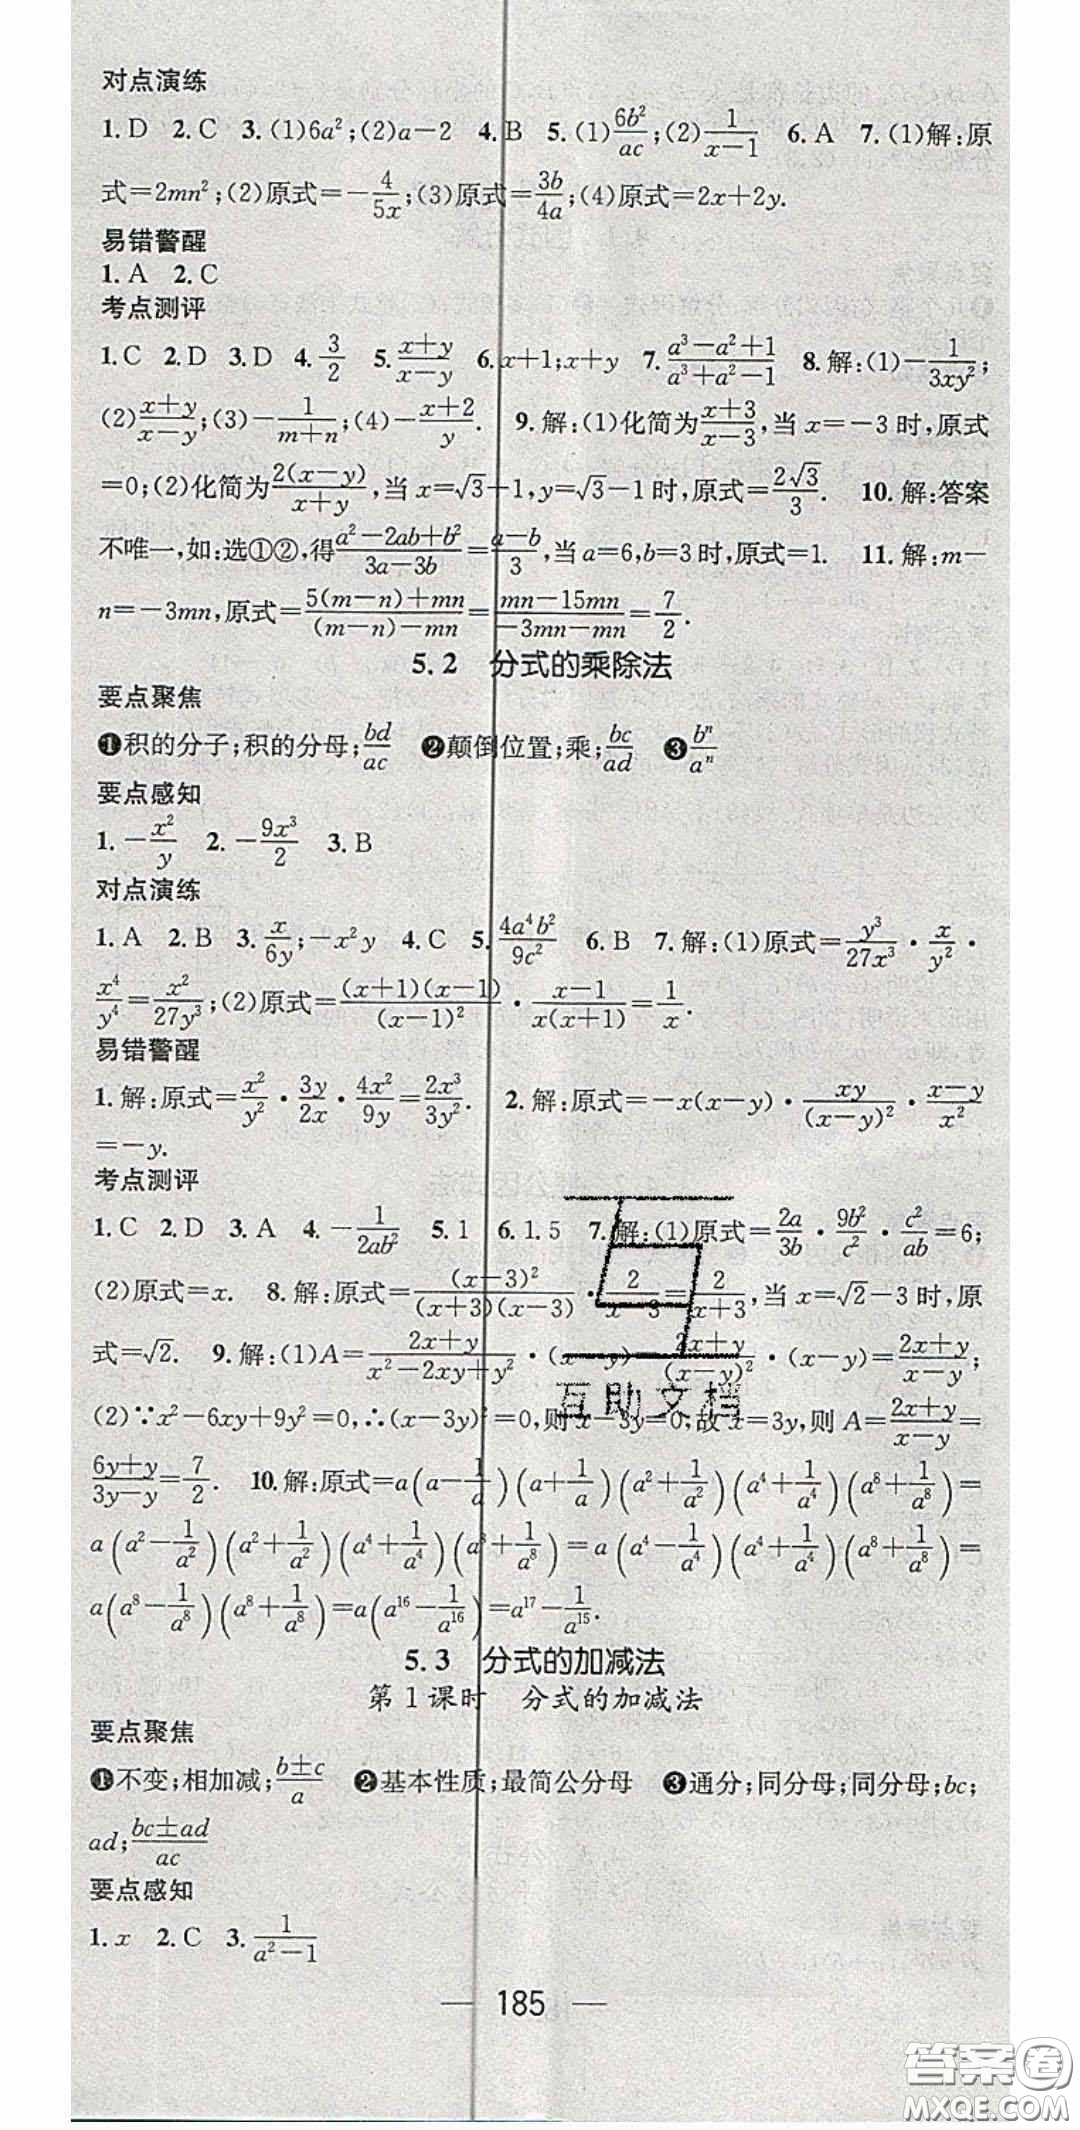 对点演练
1.D 2.C 3.(1)6a²;(2)a-2 4.B 5.(1)$\frac{6b^2}{ac}$;(2)$\frac{1}{x-1}$ 6.A 7.(1)解:原
式=2mn²;(2)原式=-$\frac{4}{5x}$;(3)原式=$\frac{3b}{4a}$;(4)原式=2x+2y.
易错警醒
1.A 2.C
考点测评
1.C 2.D 3.D 4.$\frac{3}{2}$ 5.$\frac{x+y}{x-y}$ 6.x+1;x+y 7.$\frac{a^3-a^2+1}{a^3+a^2-1}$ 8.解:(1)-$\frac{1}{3xy^2}$;
(2)$\frac{x+y}{x-y}$;(3)-$\frac{1}{m+n}$;(4)-$\frac{x+2}{y}$. 9.解:(1)化简为$\frac{x+3}{x-3}$,当x=-3时,原式
=0;(2)化简为$\frac{2(x-y)}{x+y}$,当x=√3+1,y=√3-1时,原式=$\frac{2\sqrt{3}}{3}$. 10.解:答案
不唯一,如:选①②,得$\frac{a^2-2ab+b^2}{3a-3b}$=$\frac{a-b}{3}$,当a=6,b=3时,原式=1. 11.解:m-
n=-3mn,原式=$\frac{5(m-n)+mn}{(m-n)-mn}$=$\frac{mn-15mn}{-3mn-mn}$=$\frac{7}{2}$.
5.2 分式的乘除法
要点聚焦
❶积的分子;积的分母;$\frac{bd}{ac}$ ❷颠倒位置;乘;$\frac{bc}{ad}$ ❸$\frac{b^n}{a^n}$
要点感知
1.-$\frac{x^2}{y}$ 2.-$\frac{9x^3}{2}$ 3.B
对点演练
1.A 2.B 3.$\frac{x}{6y}$;-x²y 4.C 5.$\frac{4a^4b^2}{9c^2}$ 6.B 7.解:(1)原式=$\frac{y^3}{27x^3}$·$\frac{x}{y^2}$·
$\frac{x^4}{y^4}$=$\frac{x^2}{27y^3}$;(2)原式=$\frac{(x+1)(x-1)}{(x-1)^2}$·$\frac{x-1}{x(x+1)}$=$\frac{1}{x}$.
易错警醒
1.解:原式=$\frac{x^2}{y^2}$·$\frac{3y}{2x}$·$\frac{4x^2}{9y}$=$\frac{2x^3}{3y^2}$. 2.解:原式=-x(x-y)·$\frac{xy}{(x-y)^2}$·$\frac{x-y}{x^2}$
=-y.
考点测评
1.C 2.D 3.A 4.-$\frac{1}{2ab^2}$ 5.1 6.1.5 7.解:(1)原式=$\frac{2a}{3b}$·$\frac{9b^2}{c^2}$·$\frac{c^2}{ab}$=6;
(2)原式=x. 8.解:原式=$\frac{(x-3)^2}{(x+3)(x-3)}$·$\frac{2}{x-3}$=$\frac{2}{x+3}$,当x=√2-3时,原
式=√2. 9.解:(1)A=$\frac{2x+y}{x^2-2xy+y^2}$·(x-y)=$\frac{2x+y}{(x-y)^2}$·(x-y)=$\frac{2x+y}{x-y}$;
(2)∵x²-6xy+9y²=0,∴(x-3y)²=0,则x-3y=0,故x=3y,则A=$\frac{2x+y}{x-y}$=
互助文档
$\frac{6y+y}{3y-y}$=$\frac{7}{2}$. 10.解:原式=a(a-$\frac{1}{a}$)(a+$\frac{1}{a}$)(a²+$\frac{1}{a^2}$)(a⁴+$\frac{1}{a^4}$)(a⁸+$\frac{1}{a^8}$)=
a(a²-$\frac{1}{a^2}$)(a²+$\frac{1}{a^2}$)(a⁴+$\frac{1}{a^4}$)(a⁸+$\frac{1}{a^8}$)=a(a⁴-$\frac{1}{a^4}$)(a⁴+$\frac{1}{a^4}$)(a⁸+$\frac{1}{a^8}$)=
a(a⁸-$\frac{1}{a^8}$)(a⁸+$\frac{1}{a^8}$)=a(a¹⁶-$\frac{1}{a^{16}}$)=a¹⁷-$\frac{1}{a^{15}}$.
5.3 分式的加减法
第1课时 分式的加减法
要点聚焦
❶不变;相加减;$\frac{b±c}{a}$ ❷基本性质;最简公分母 ❸通分;同分母;同分母;bc;
ad;$\frac{bc±ad}{ac}$
要点感知
1.x 2.C 3.$\frac{1}{a^2-1}$
— 185 —
答案圈
MXQE.COM